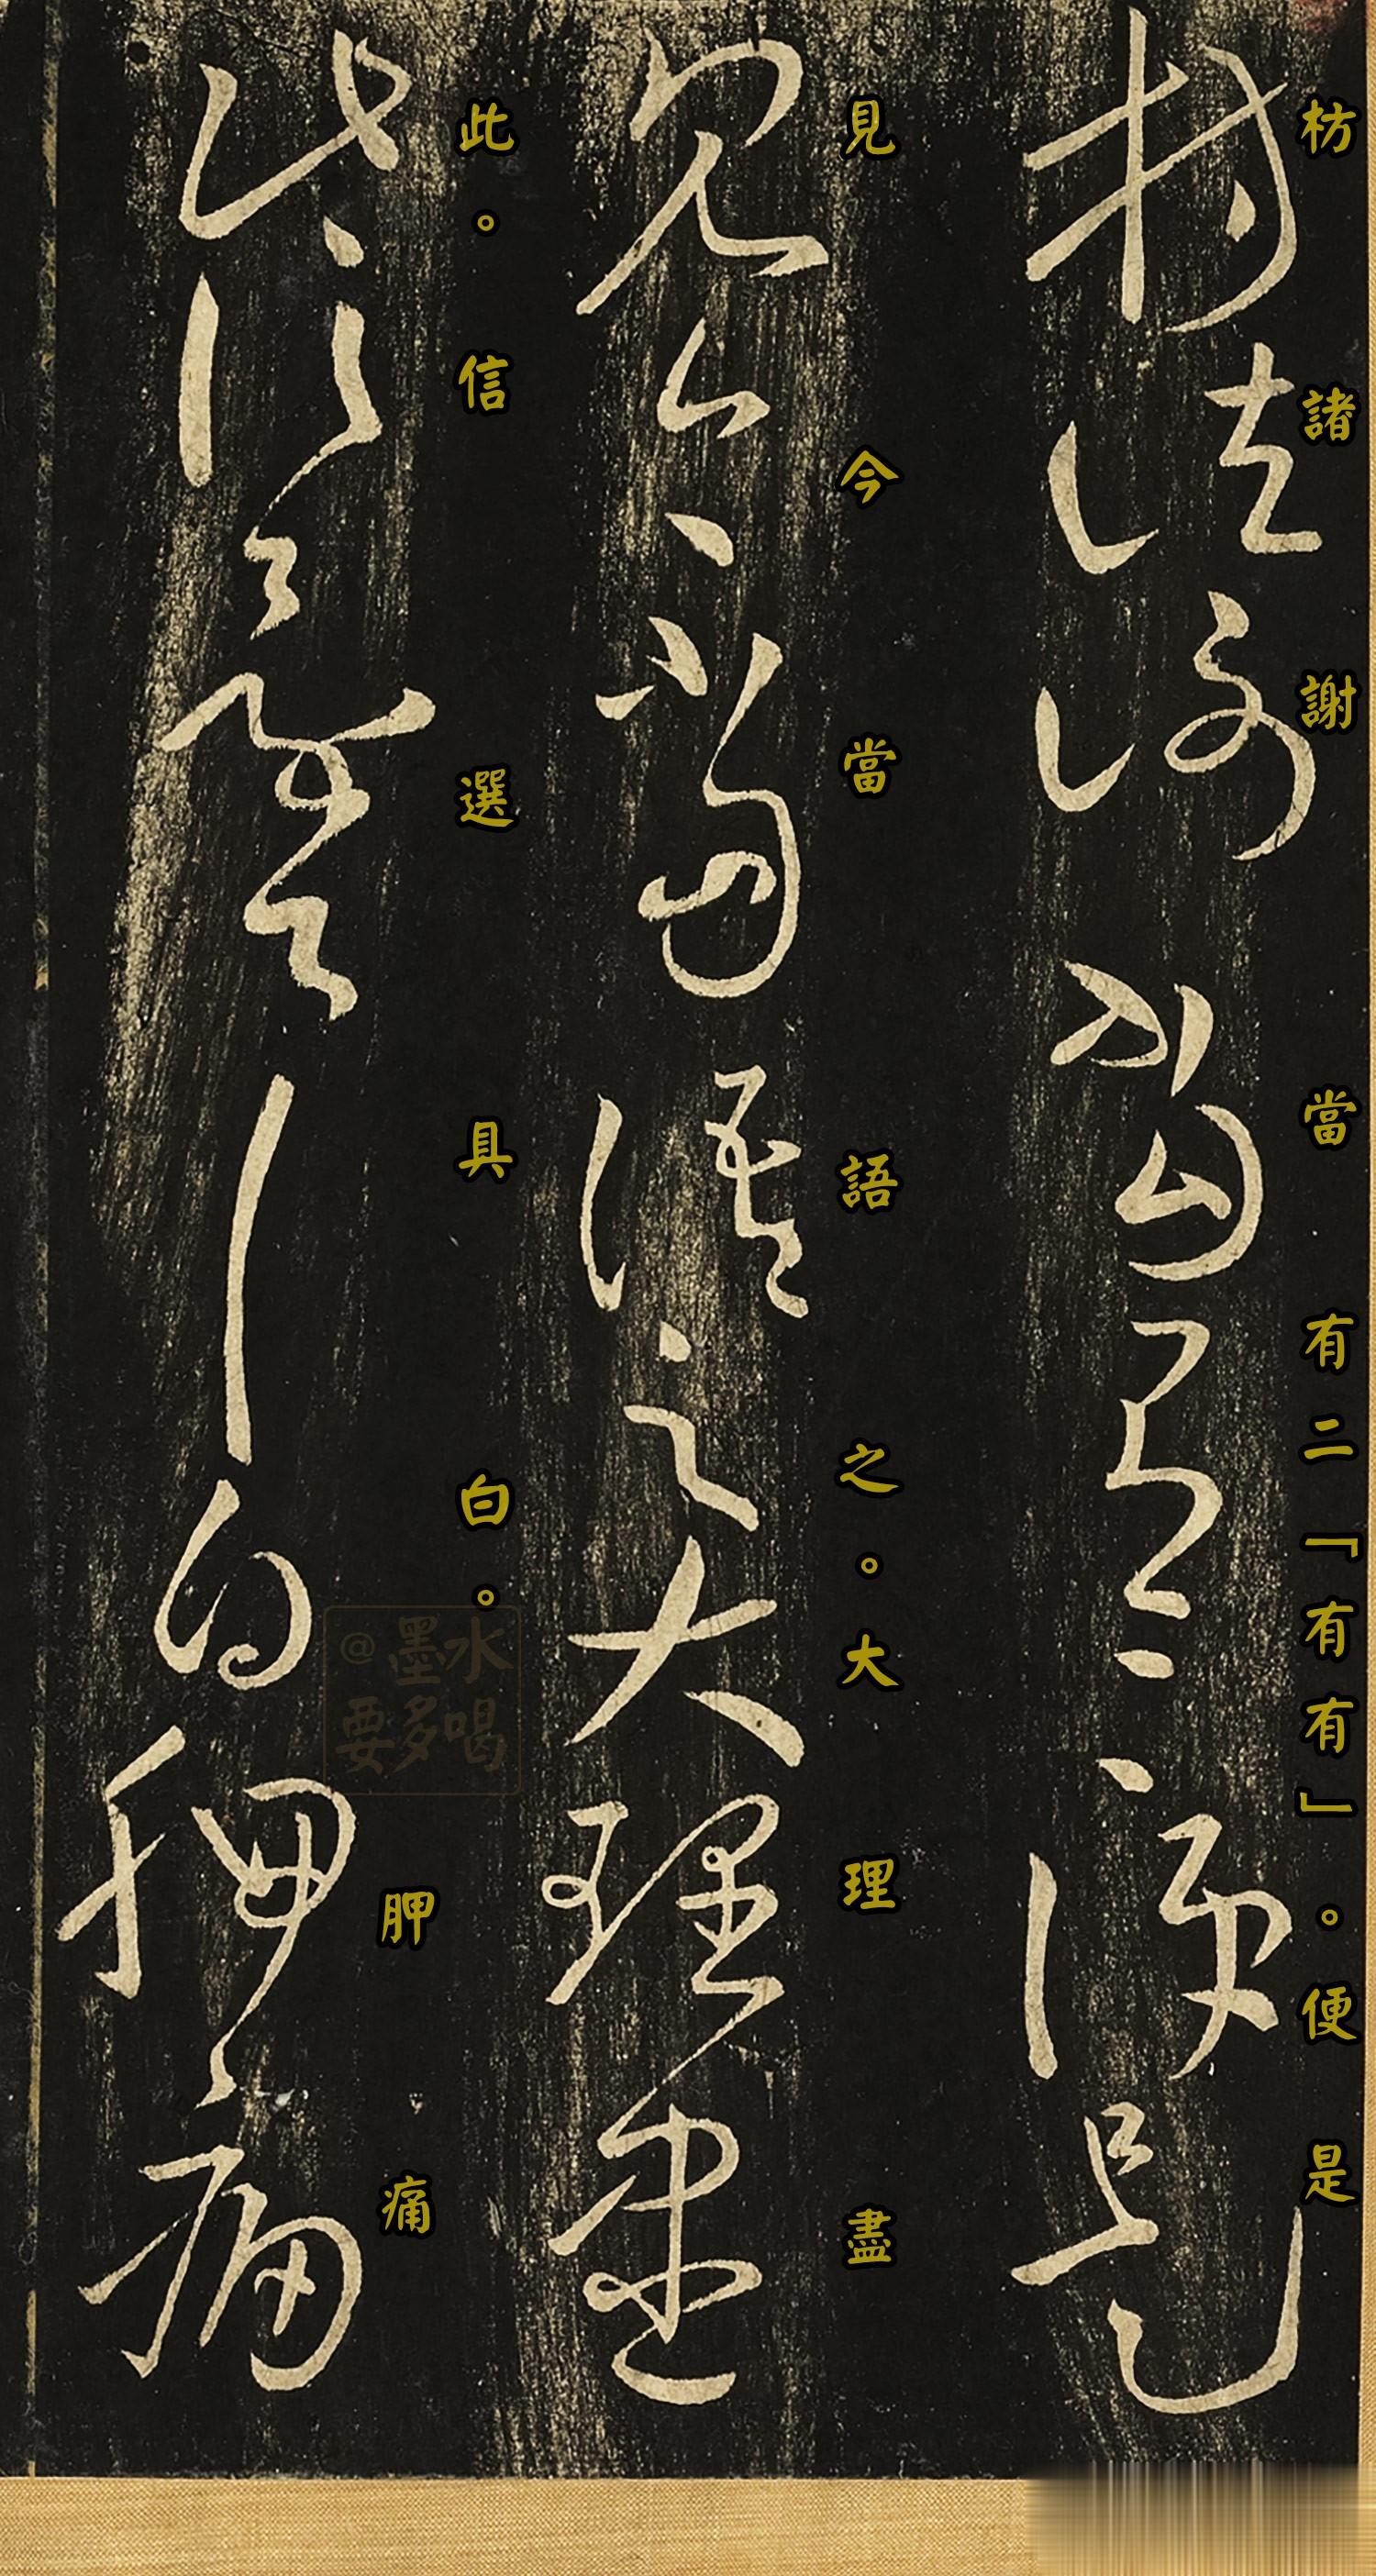 枋諸謝當有二『有有』。便是
見今當語之。大理盡
此。信選具白。
胛痛
@墨水
要多喝